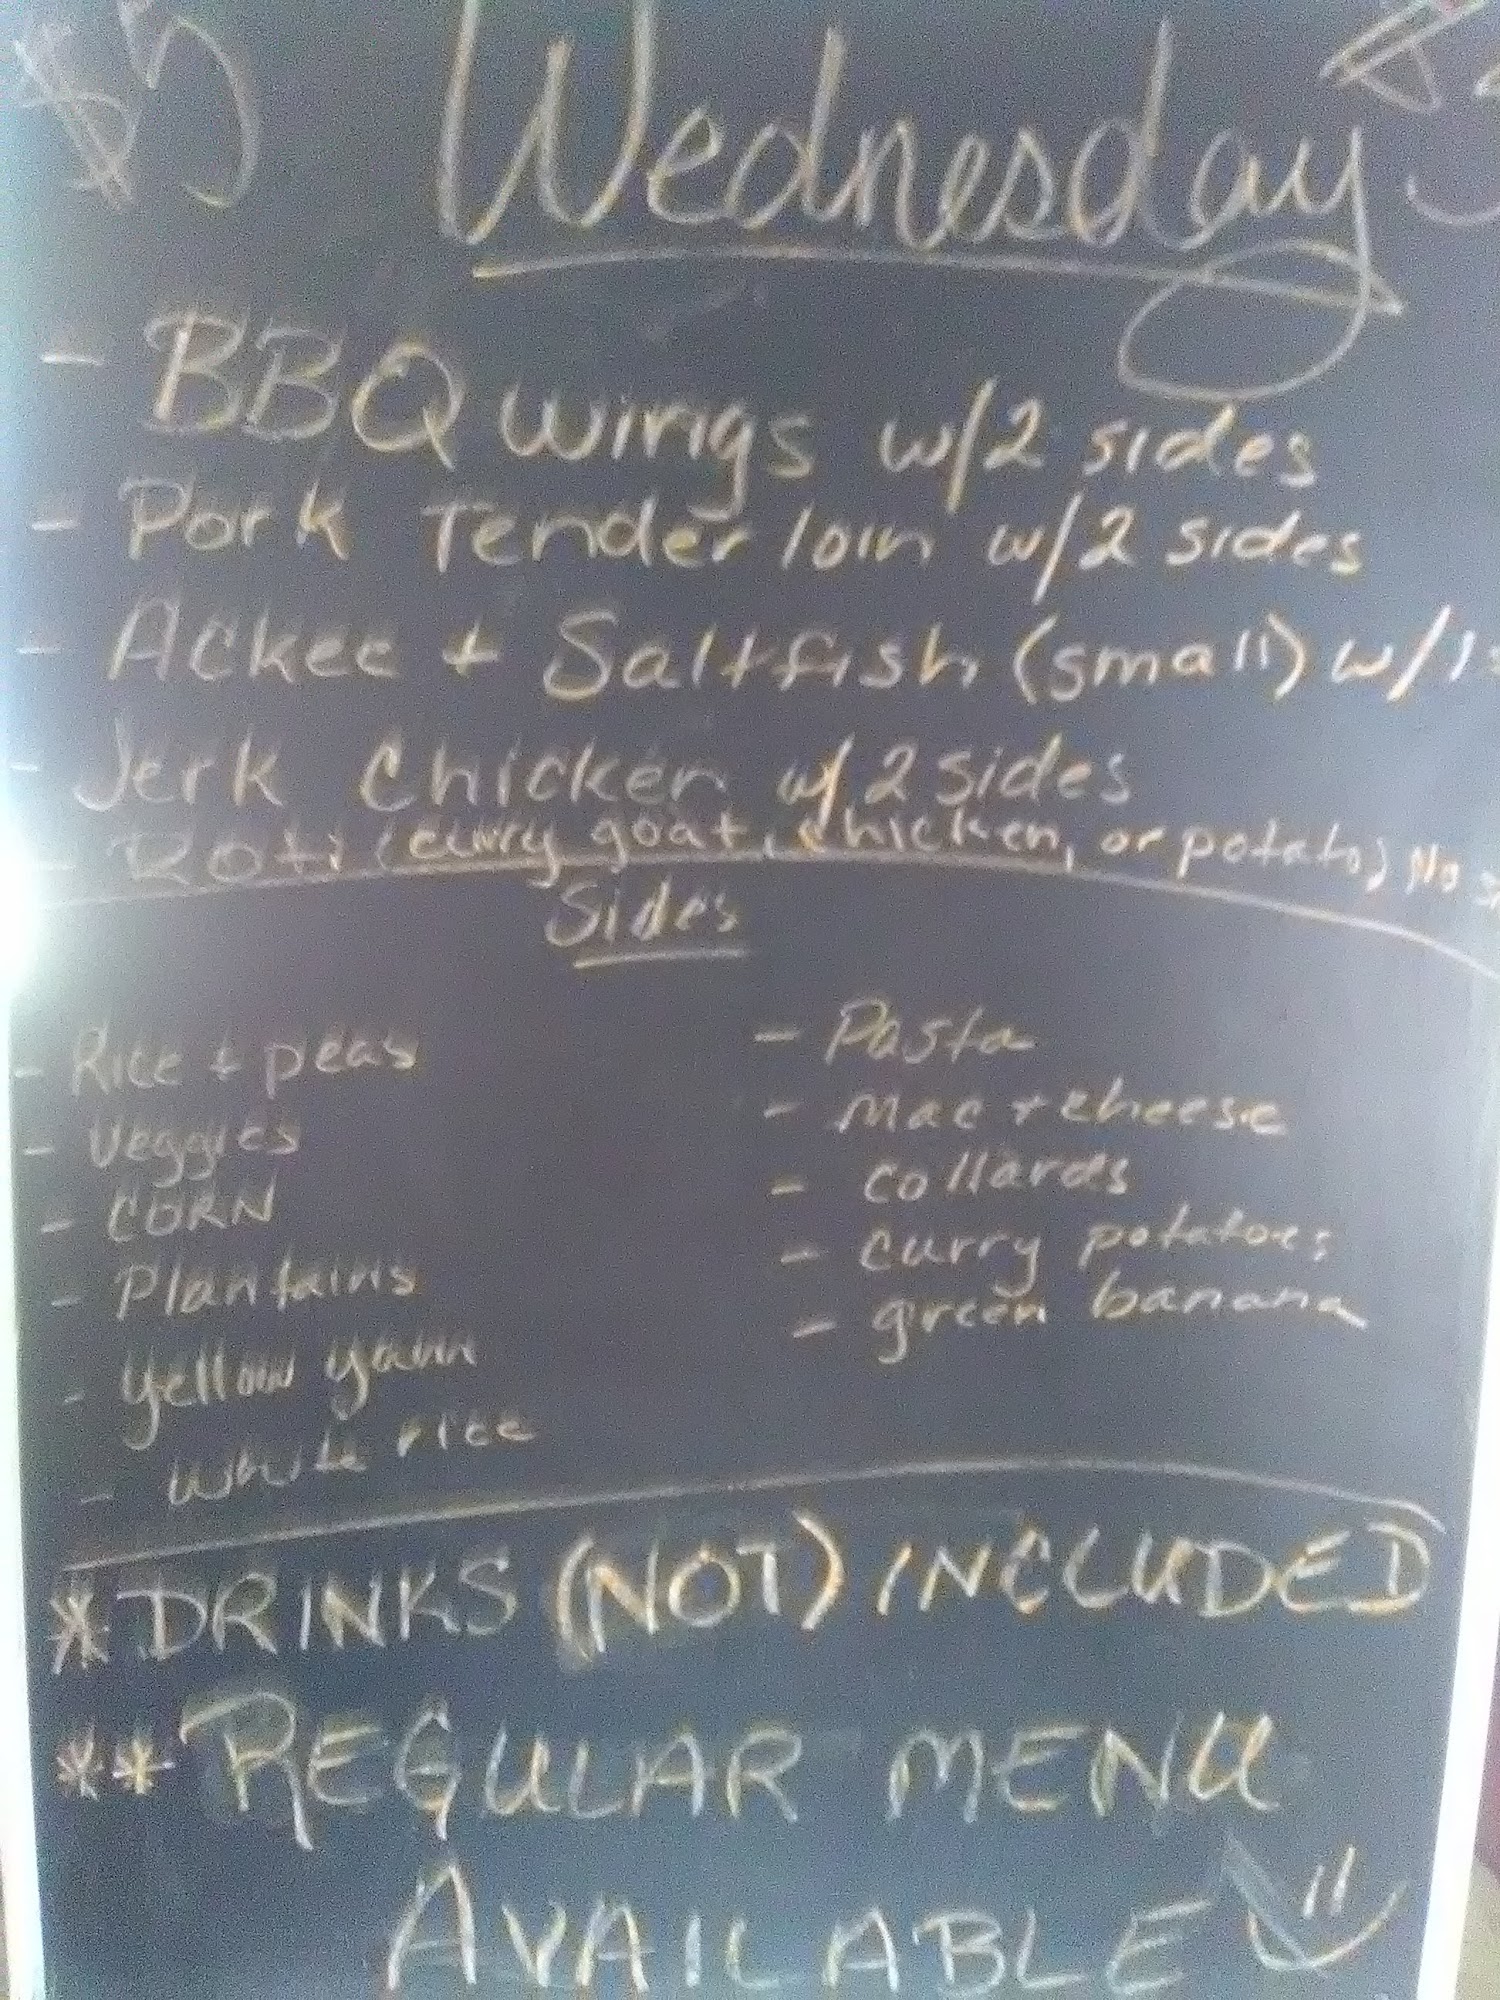 $5 Wednesday $5
- BBQ wings w/2 sides
- Pork Tenderloin w/2 sides
- Ackee + Saltfish (small) w/1
- Jerk Chicken w/2 sides
- Roti (curry goat, chicken, or potato) No
Sides
- Rice + peas
- Veggies
- CORN
- Plantains
- Yellow yam
- White rice
- Pasta
- Mac + cheese
- collards
- curry potatoes
- green banana
* DRINKS (NOT) INCLUDED
** REGULAR MENU
AVAILABLE